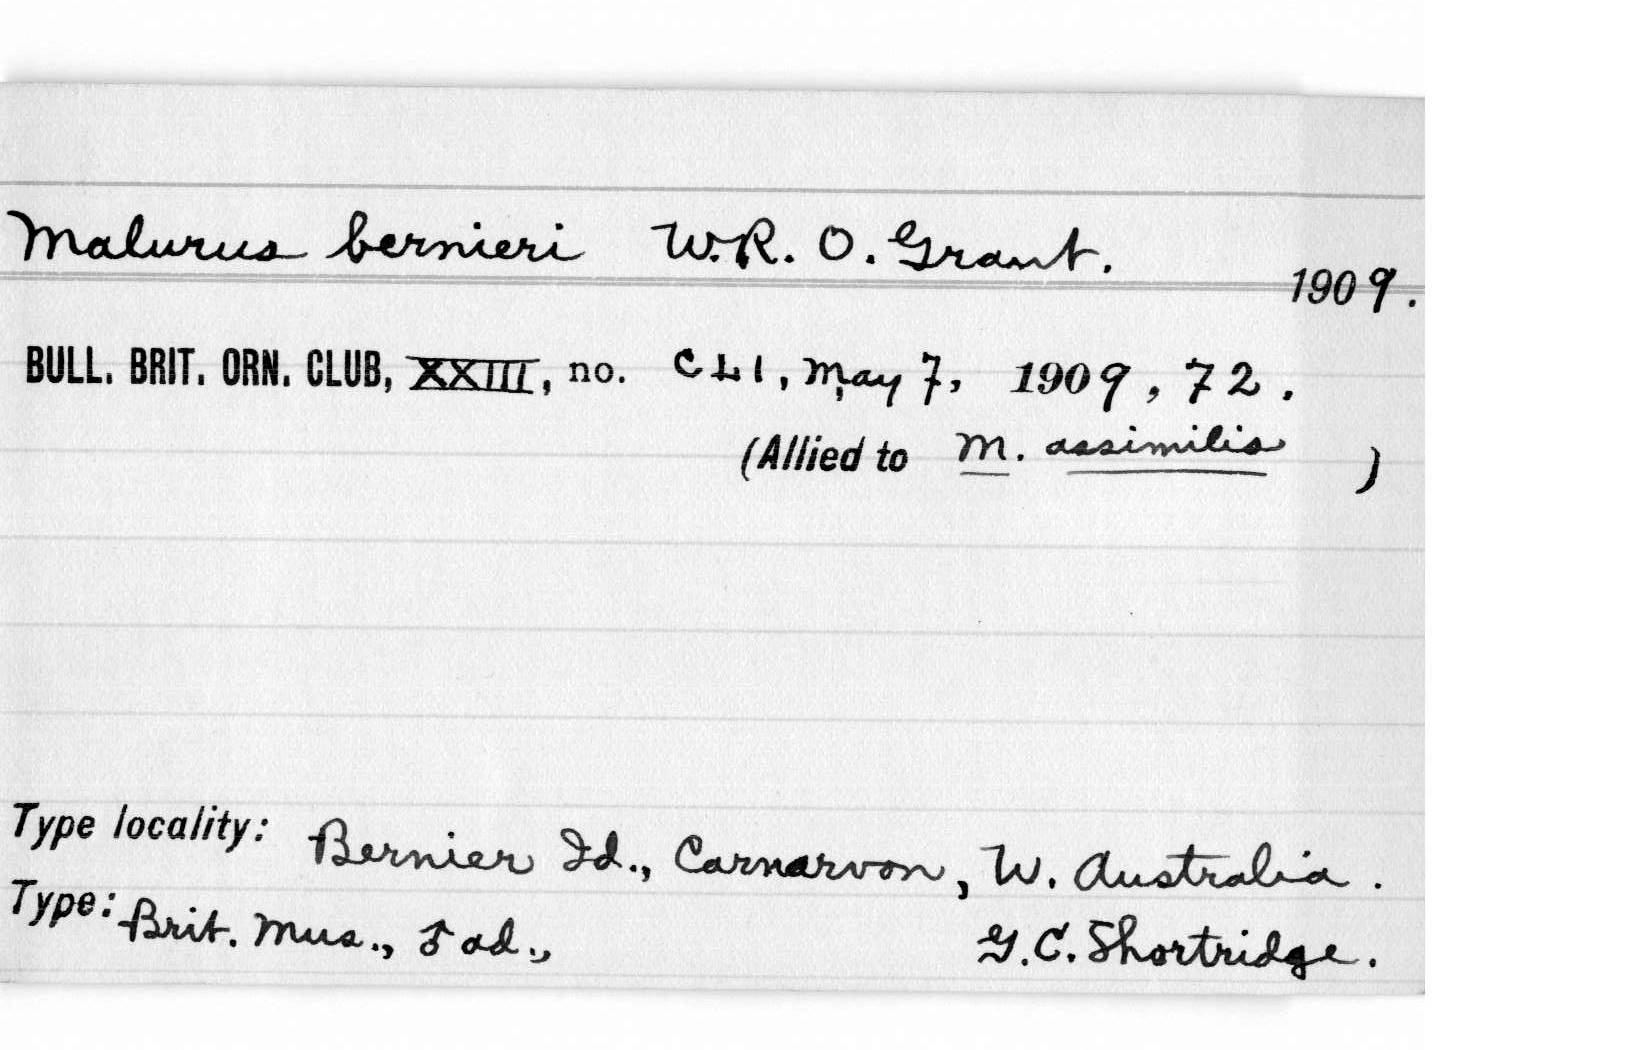 Malurus bernieri W.R. O. Grant.
1909.
BULL. BRIT. ORN. CLUB, XXIII, no. CLI, May 7, 1909, 72.
(Allied to M. assimilis )
Type locality: Bernier Id., Carnarvon, W. Australia.
Type: Brit. Mus., ♂ ad., G.C. Shortridge.